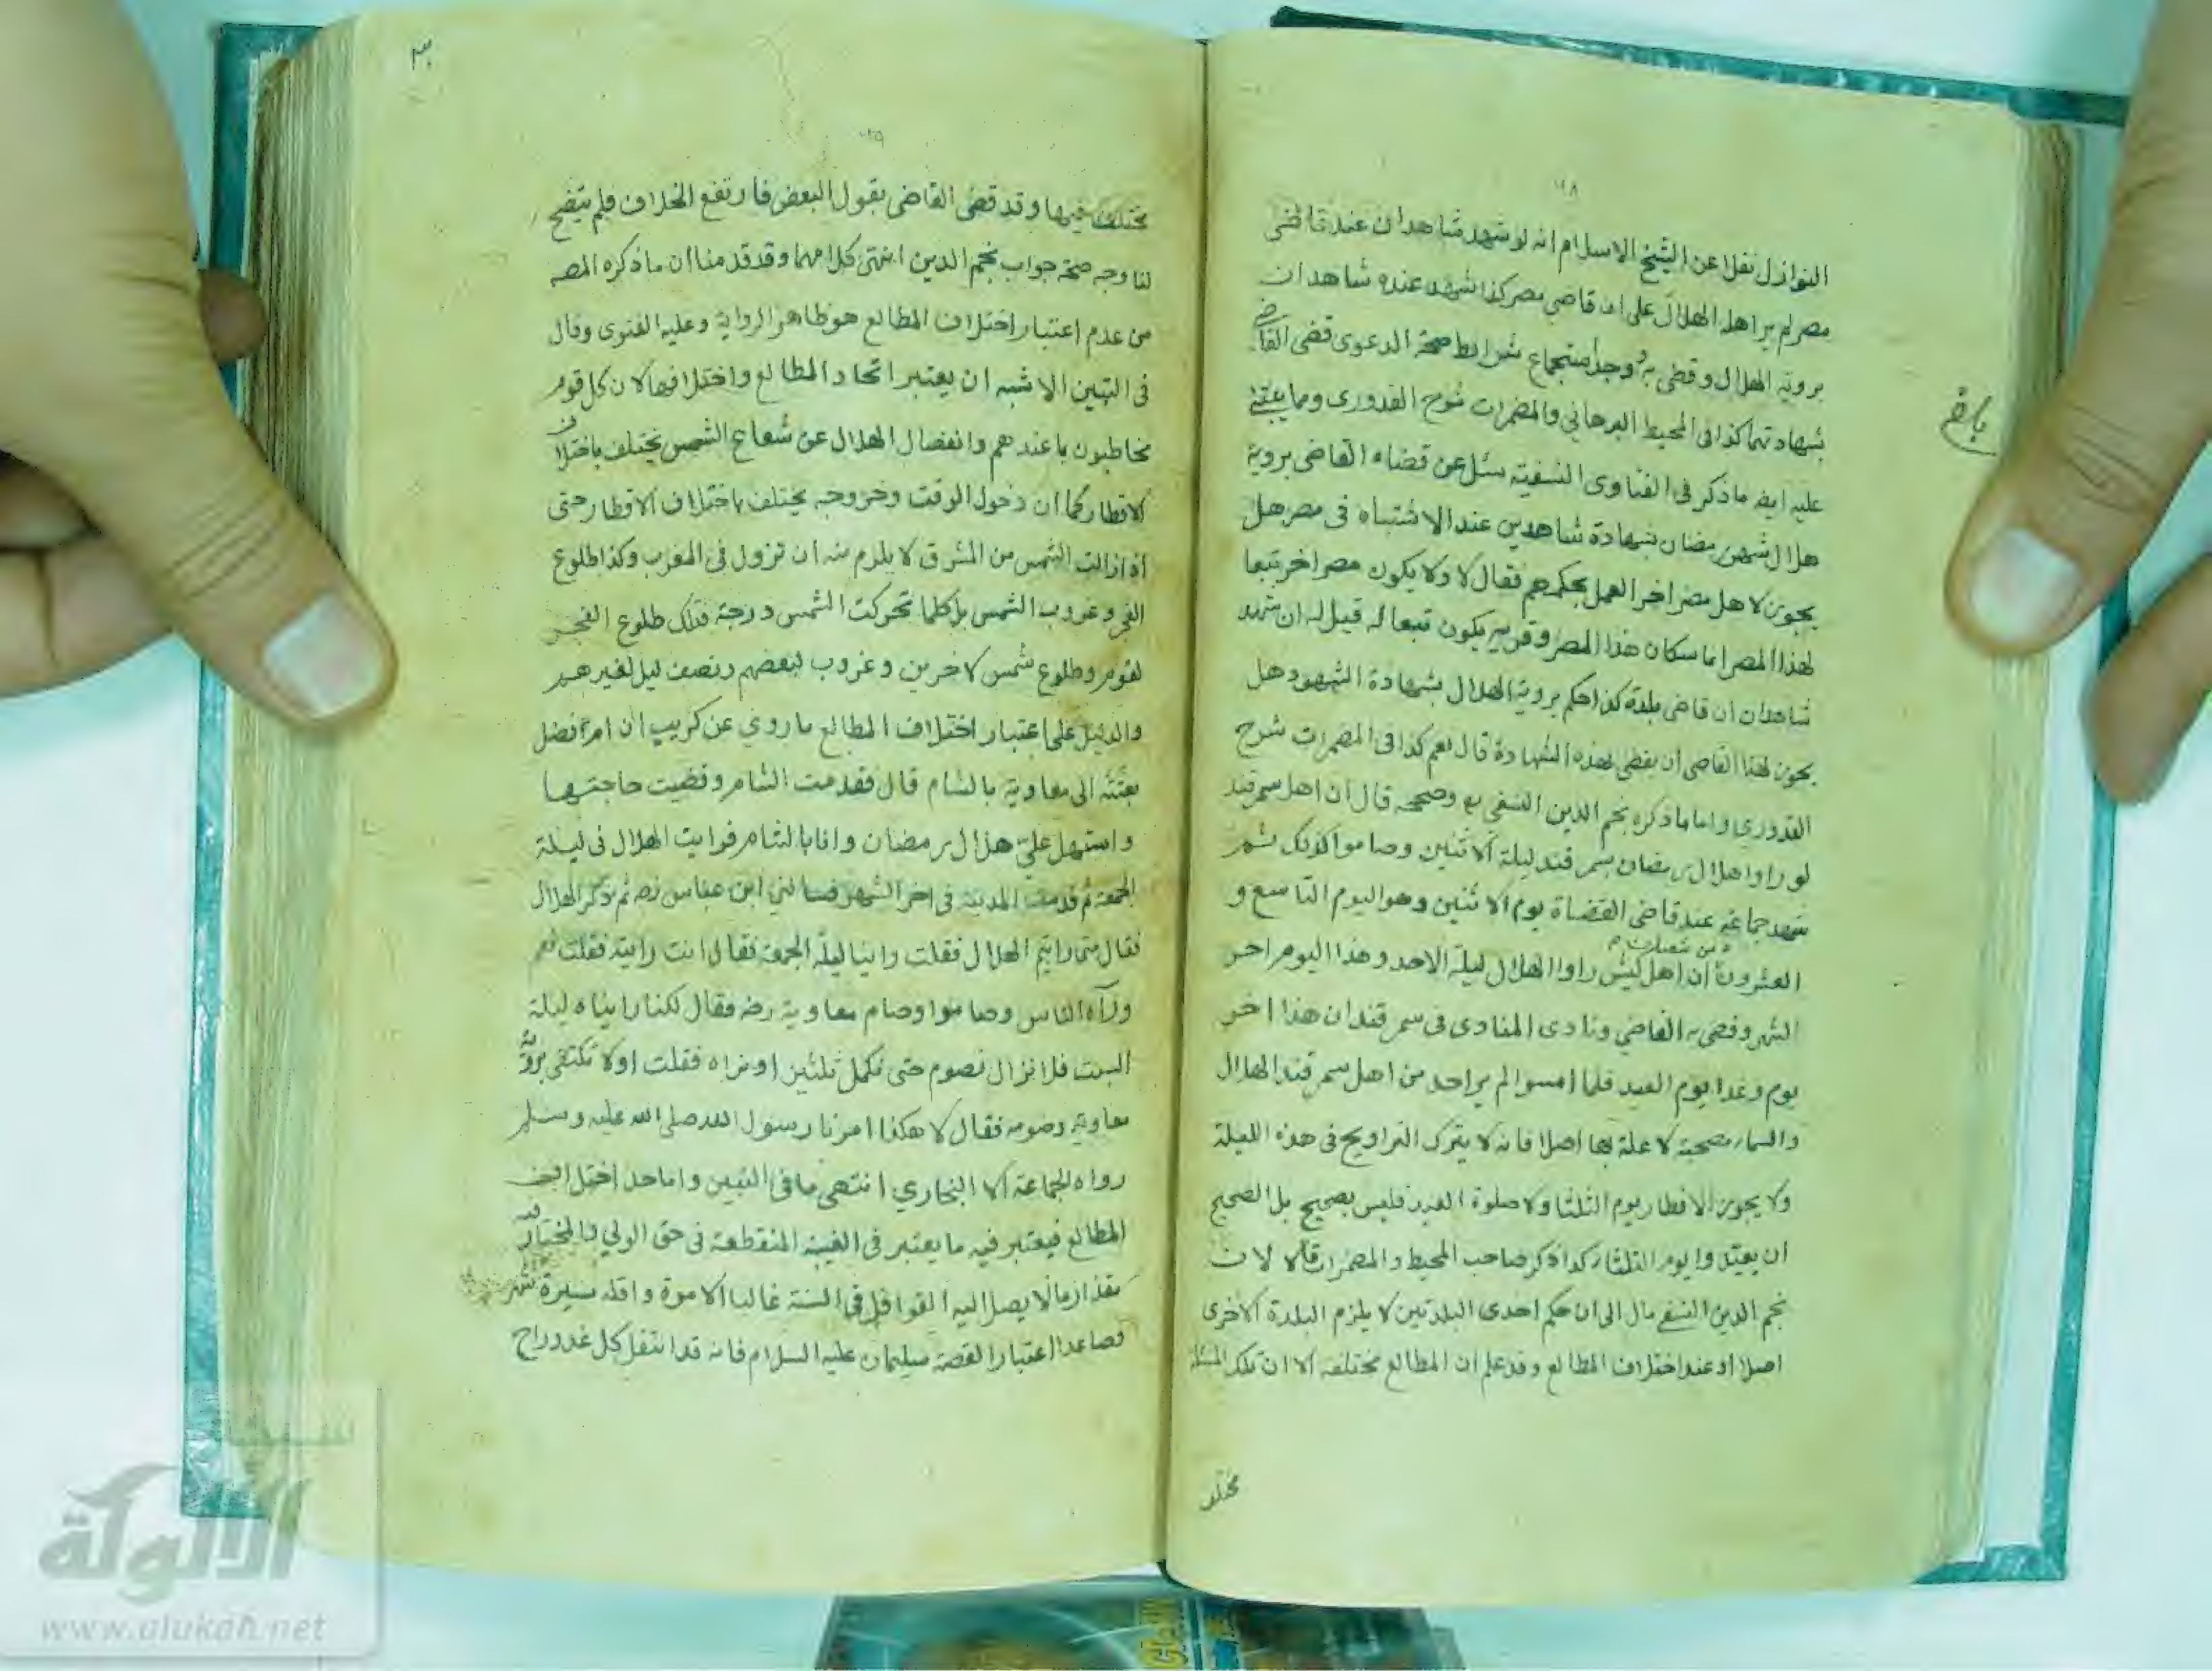 ٦٨
النوازل نقلا عن الشيخ الاسلام انه لو شهد شاهدان عند قاضى
مصر لم ير اهله الهلال على ان قاضى مصر كذا شهد عنده شاهدان
بروية الهلال وقضى به ووجد استجماع شرائط صحة الدعوى قضى القاضى
بشهادتهما كذا فى المحيط البرهاني والمضمرات شرح القدورى ومما يبتنى
عليه ايضا ما ذكر فى الفتاوى النسفية سئل عن قضاء القاضى بروية
هلال شهر رمضان بشهادة شاهدين عند الاشتباه فى مصر هل
يجوز لاهل مصر اخر العمل بحكمهم فقال لا ولا يكون مصر اخر تبعا
لهذا المصر اما سكان هذا المصر وقريه يكون تبعا له قيل له ان شهد
شاهدان ان قاضى بلدة كذا حكم بروية الهلال بشهادة الشهود هل
يجوز لهذا القاضى ان يقضى بهذه الشهادة قال نعم كذا فى المضمرات شرح
القدورى واما ما ذكره نجم الدين النسفى وصححه قال ان اهل سمرقند
لو راوا هلال رمضان بسمرقند ليلة الاثنين وصاموا كذلك ثم
شهد جماعة عند قاضى القضاة يوم الاثنين وهو اليوم التاسع و
العشرون ان اهل كيش راوا الهلال ليلة الاحد وهذا اليوم اخر
الشهر وقضى به القاضي ونادى المنادى فى سمرقند ان هذا اخر
يوم وغدا يوم العيد فلما امسوا لم ير احد من اهل سمرقند الهلال
والسماء مصحية لا علة بها اصلا فانه لا يترك التراويح فى هذه الليلة
ولا يجوز الافطار يوم الثلثا ولا صلوة العيد فليس بصحيح بل الصحيح
ان يعيدوا يوم الثلثاء كذا ذكر صاحب المحيط والمضمرات قالا لان
نجم الدين النسفى مال الى ان حكم احدى البلدتين لا يلزم البلدة الاخرى
اصلا او عند اختلاف المطالع وقد علم ان المطالع مختلفة الا ان تلك المسئلة
مختلف
مختلف فيها وقد قضى القاضى بقول البعض فارتفع الخلاف فلم يتضح
لنا وجه صحة جواب نجم الدين انتهى كلامهما وقد قدمنا ان ما ذكره المصـ
من عدم اعتبار اختلاف المطالع هو ظاهر الرواية وعليه الفتوى وقال
فى التبيين الاشبه ان يعتبر اتحاد المطالع واختلافها لان كل قوم
مخاطبون بما عندهم وانفصال الهلال عن شعاع الشمس يختلف باختلاف
الاقطار كما ان دخول الوقت وخروجه يختلف باختلاف الاقطار حتى
اذا زالت الشمس من المشرق لا يلزم منه ان تزول فى المغرب وكذا طلوع
الفجر وغروب الشمس بل كلما تحركت الشمس درجة فتلك طلوع الفجر
لقوم وطلوع شمس لاخرين وغروب لبعضهم ونصف ليل لغيرهم
والدليل على اعتبار اختلاف المطالع ما روي عن كريب ان ام الفضل
بعثته الى معاوية بالشام قال فقدمت الشام وقضيت حاجتها
واستهل علي هلال رمضان وانا بالشام فرايت الهلال فى ليلة
الجمعة ثم قدمت المدينة فى اخر الشهر فسالني ابن عباس رضه ثم ذكر الهلال
فقال متى رايتم الهلال فقلت راينا ليلة الجمعة فقال انت رايته فقلت نعم
ورآه الناس وصاموا وصام معاوية رضه فقال لكنا رايناه ليلة
السبت فلا نزال نصوم حتى نكمل ثلثين او نراه فقلت اولا تكتفى بروية
معاوية وصومه فقال لا هكذا امرنا رسول الله صلى الله عليه وسلم
رواه الجماعة الا البخاري انتهى ما فى التبيين واما حد اختلاف
المطالع فيعتبر فيه ما يعتبر فى الغيبة المنقطعة فى حق الولي والمختار فيه
مقدار ما لا يصل اليه القوافل فى السنة غالبا الا مرة واقله مسيرة شهر
فصاعدا اعتبارا لقصة سليمان عليه السلام فانه قد انتقل كل غد ورواح
الألوكة
www.alukah.net